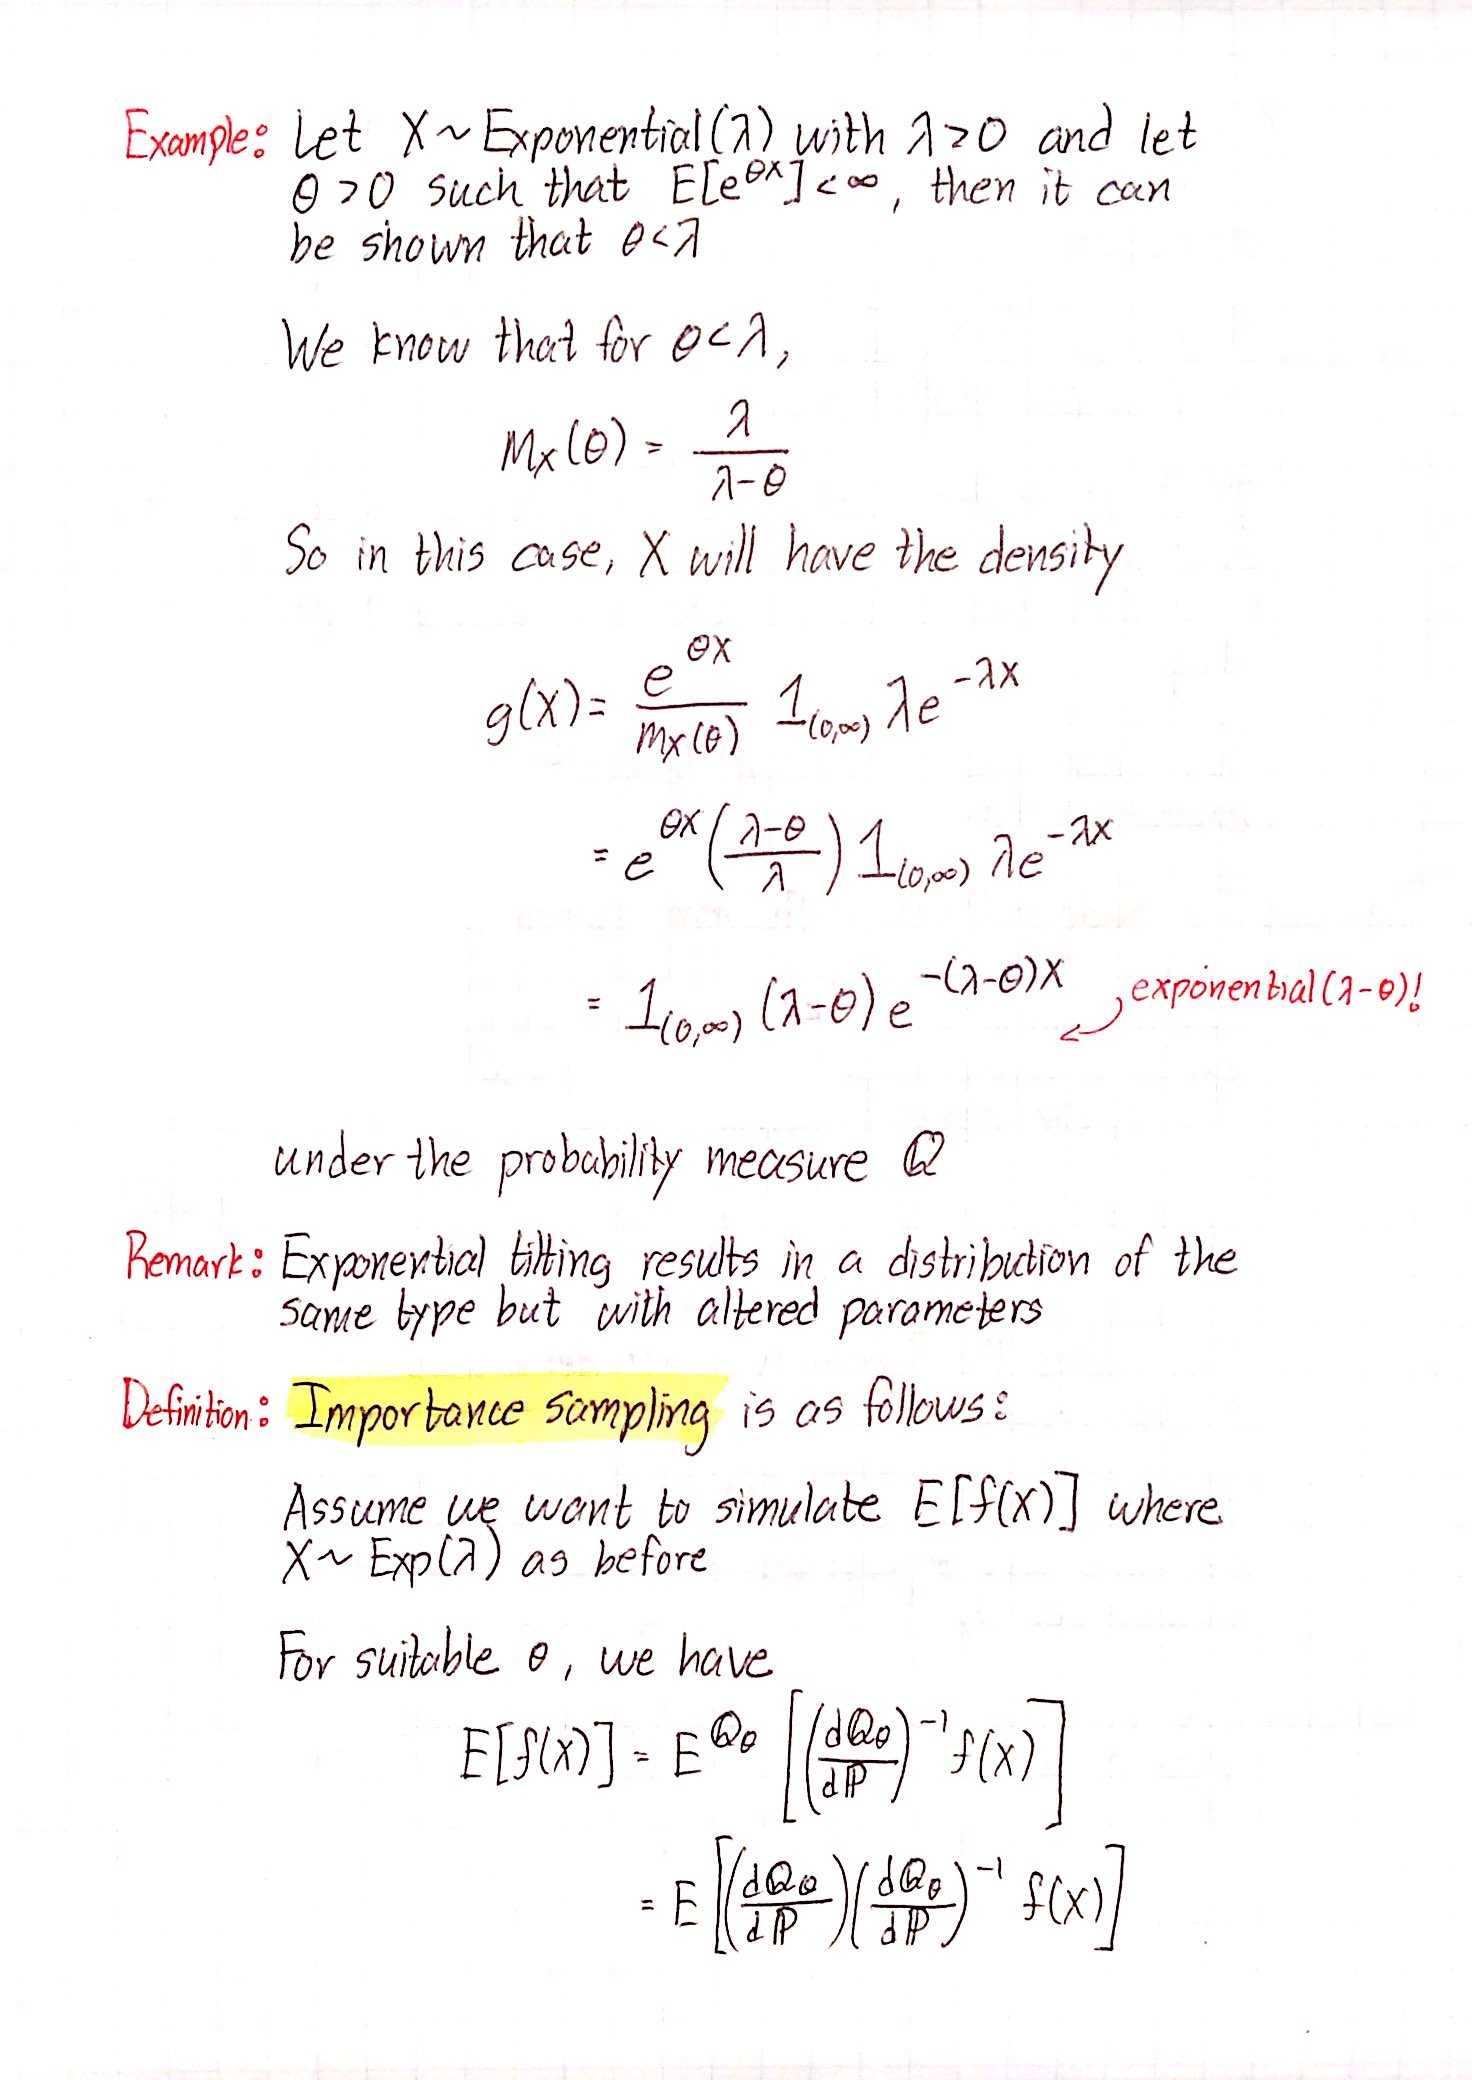 Example: Let X ~ Exponential(λ) with λ>0 and let
θ>0 such that E[e^{θX}]<∞, then it can
be shown that θ<λ
We know that for θ<λ,
m_X(θ) = λ/(λ-θ)
So in this case, X will have the density
g(x) = e^{θx}/m_X(θ) 1_{(0,∞)} λe^{-λx}
= e^{θx}((λ-θ)/λ) 1_{(0,∞)} λe^{-λx}
= 1_{(0,∞)} (λ-θ) e^{-(λ-θ)x} exponential(λ-θ)!
under the probability measure ℚ
Remark: Exponential tilting results in a distribution of the
same type but with altered parameters
Definition: Importance sampling is as follows:
Assume we want to simulate E[f(X)] where
X ~ Exp(λ) as before
For suitable θ, we have
E[f(X)] = E^{ℚ_θ} [(dℚ_θ/dℙ)^{-1} f(X)]
= E[(dℚ_θ/dℙ)(dℚ_θ/dℙ)^{-1} f(X)]